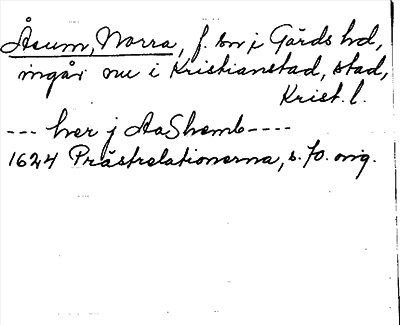 Åsum, Norra, f. sn i Gärds hd,
ingår nu i Kristianstad, stad,
Krist. l.
--- hver j AaShemb ----
1624 Prästrelationerna, s. 70. orig.